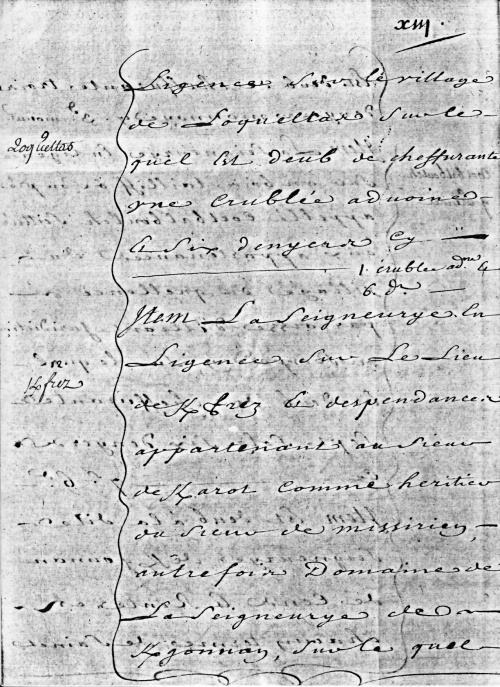 xiij
Ligence sur le village
de Loqueltas sur le
Loqueltas
quel est deub de cheffurante
vne crublée advoine
& six denyers cy
1. crublée adne &
6. dr
Item La Seigneurye en
Ligence sur Le Lieu
K/frez
de K/frez & despendances
appartenant au sieur
de K/arot comme heritier
du sieur de missirien,
autrefois Domaine de
La Seigneurye de
K/gonnan, sur le quel